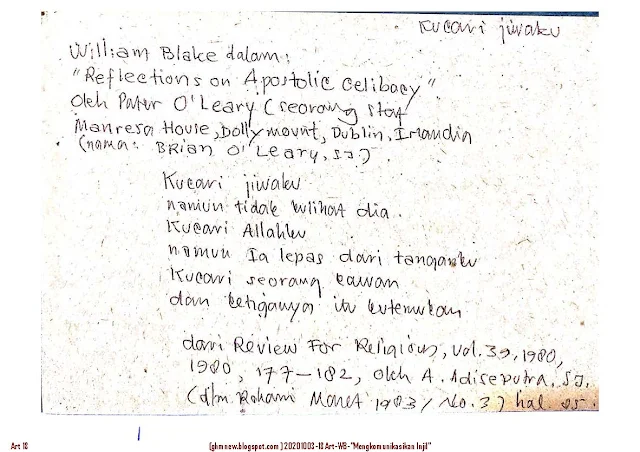 Kucari jiwaku
William Blake dalam:
"Reflections on Apostolic Celibacy"
Oleh Pater O'Leary (seorang staf
Manresa House, Dollymount, Dublin, Irlandia
(nama: BRian O'Leary, SJ).
Kucari jiwaku
namun tidak kulihat dia.
Kucari Allahku
namun Ia lepas dari tanganku
Kucari seorang kawan
dan ketiganya itu kutemukan
dari Review For Religious, Vol. 39, 1980,
1980, 177-182, oleh A. Adiseputra, SJ.
(dlm. Rohani Maret 1983/ No. 3) hal. 95.
Art 18 (ghmnew.blogspot.com) 20201003-18 Art-WB-"Mengkomunikasikan Injil"